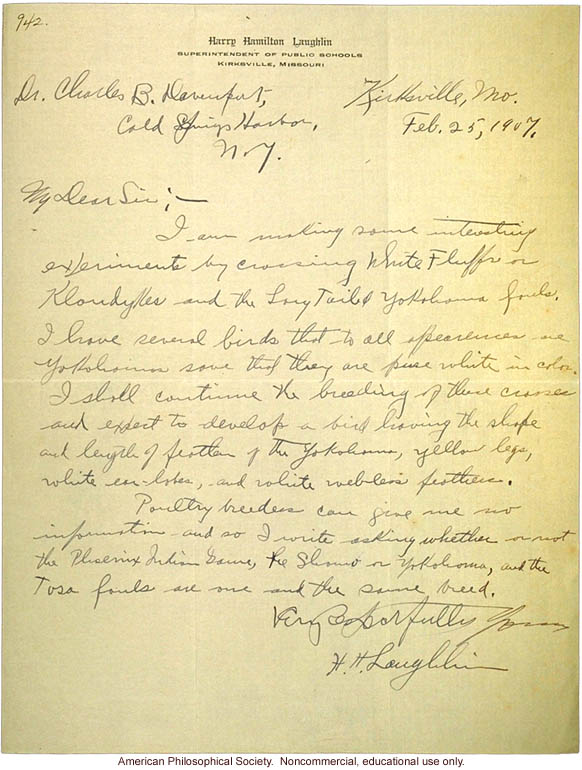 942.
Harry Hamilton Laughlin
SUPERINTENDENT OF PUBLIC SCHOOLS
KIRKSVILLE, MISSOURI
Dr. Charles B. Davenport,
Kirksville, Mo.
Cold Springs Harbor,
Feb. 25, 1907.
N.Y.
My Dear Sir;—
I am making some interesting
experiments by crossing White Fluffs or
Klondykes and the Long Tailed Yokohoma fowls.
I have several birds that to all appearences are
Yokohoma save that they are pure white in color.
I shall continue the breeding of these crosses
and expect to develop a bird having the shape
and length of feather of the Yokohoma, yellow legs,
white ear-lobes, and white webless feathers.
Poultry breeders can give me no
information and so I write asking whether or not
the Phoenix Indian Game, the or Yokohoma, and the
Tosa fowls are one and the same breed.
Very Respectfully Yours
H. H. Laughlin
American Philosophical Society. Noncommercial, educational use only.